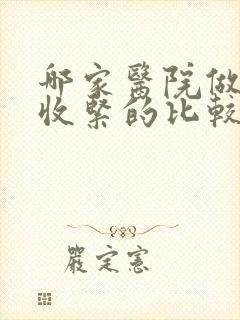 哪家醫院做
收緊的比較
嚴定憲